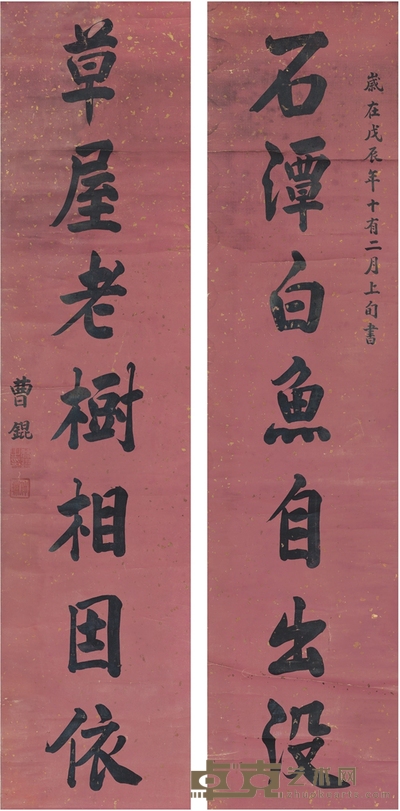 歲在戊辰年十有二月上旬書
石潭白魚自出没
草屋老樹相因依
曹錕
卓克艺术网